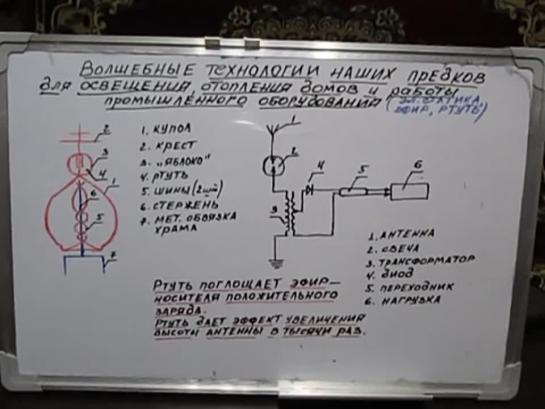 Волшебные технологии наших предков
для освещения, отопления домов и работы
промышленного оборудования (эл. статика,
эфир, ртуть)
1. купол
2. крест
3. „яблоко"
4. ртуть
5. шины (2шт)
6. стержень
7. мет. обвязка
храма
2
3
4
1
6
5
7
1
2
3
4
5
6
1. антенна
2. свеча
3. трансформатор
4. диод
5. переходник
6. нагрузка
Ртуть поглощает эфир–
носителя положительного
заряда.
Ртуть дает эффект увеличения
высоты антенны в тысячи раз.